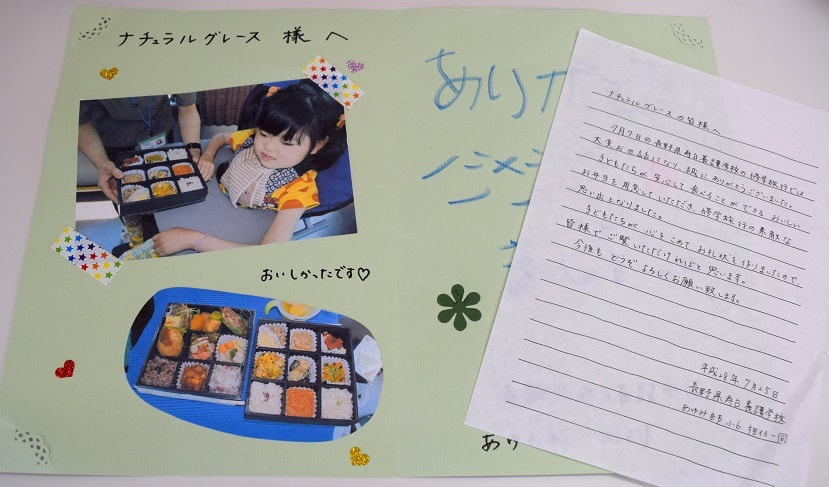 ナチュラルグレース 様 へ
おいしかったです♡
ありが
あり
ナチュラルグレースの皆様へ
7月7日の長野県寿台養護学校の修学旅行では
大変お世話になり、誠にありがとうございました。
子どもたちが安心して食べることができるおいしい
お弁当を用意していただき、修学旅行の素敵な
思い出となりました。
子どもたちが心をこめてお礼状を作りましたので、
皆様でご覧いただければと思います。
今後もどうぞよろしくお願い致します。
平成28年7月25日
長野県寿台養護学校
あゆみ部 小6 担任一同